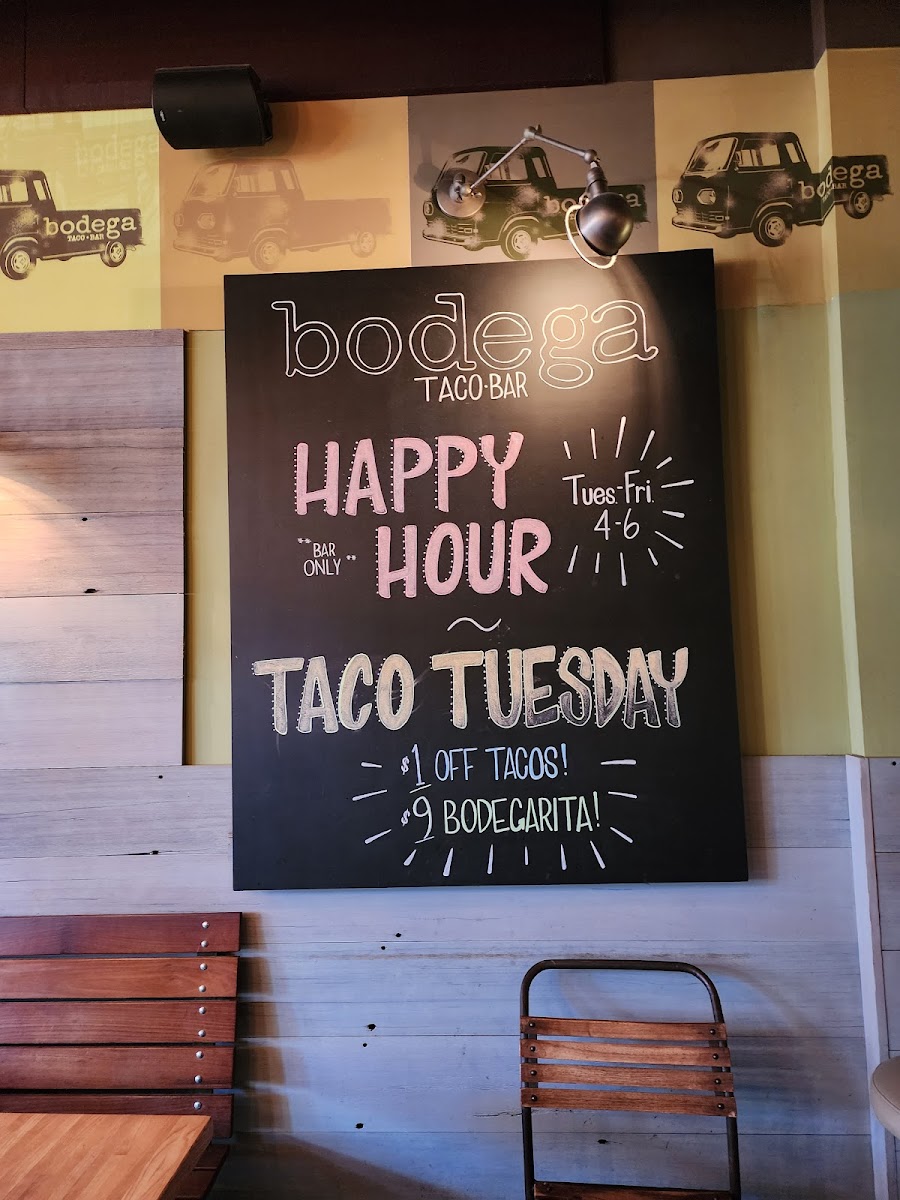 bodega
bodega
TACO • BAR
bodega
bodega
BAR
bodega
TACO·BAR
HAPPY
HOUR
**BAR
ONLY**
Tues.-Fri.
4-6
~
TACO TUESDAY
$1 OFF TACOS!
$9 BODEGARITA!